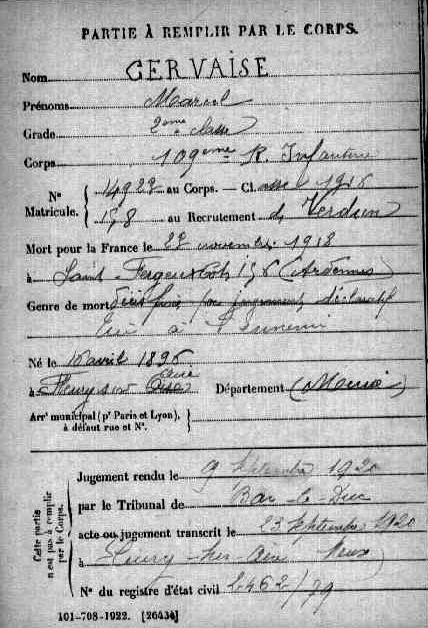 PARTIE À REMPLIR PAR LE CORPS.
Nom GERVAISE
Prénoms Marcel
Grade 2ème classe
Corps 109ème R. Infanterie
N° Matricule. 14922 au Corps. — Cl. 1916
158 au Recrutement de Verdun
Mort pour la France le novembre 1918
à Saint Fergeux (Ardennes)
Genre de mort fixé par jugement déclaratif
Tué à l'ennemi
Né le avril 1896
à Fleury sur Aire Département (Meuse)
Arrt municipal (pr Paris et Lyon), à défaut rue et N°.
Cette partie n'est pas à remplir par le Corps.
Jugement rendu le 9 septembre 1920
par le Tribunal de Bar-le-Duc
acte ou jugement transcrit le 23 septembre 1920
à Fleury Aire Meuse
N° du registre d'état civil 2462/79
101-708-1922. [26434]